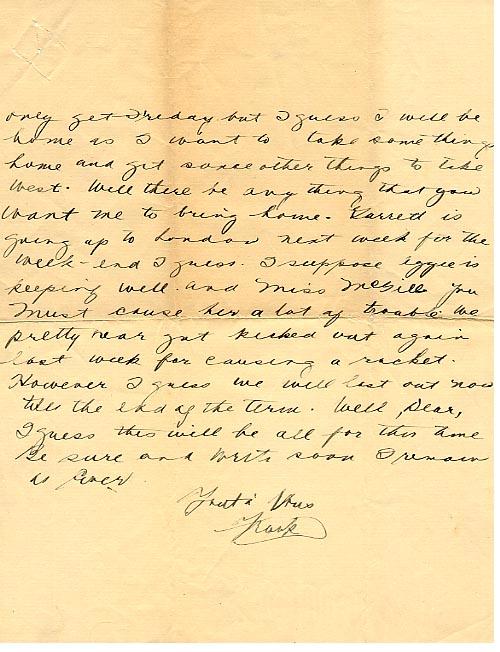 only get Friday but I guess I will be
home as I want to take some things
home and get some other things to take
West. Will there be any thing that you
want me to bring home. Garrett is
going up to London next week for the
week-end I guess. I suppose Eggie is
keeping well. and Miss McGill You
Must cause her a lot of trouble We
pretty near got kicked out again
last week for causing a racket.
However I guess we will last out now
till the end of the term. Well, Dear,
I guess this will be all for this time
Be sure and write soon I remain
as Ever.